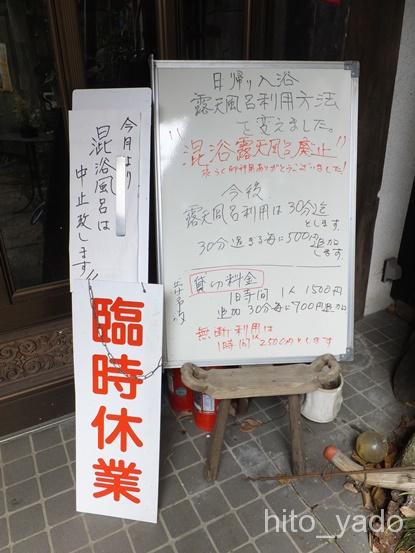 今月より
混浴風呂は
中止致します
臨時休業
日帰り入浴
露天風呂利用方法
を変えました。
"混浴露天風呂廃止"
永らく御利用ありがとうございました!
今後
露天風呂利用は30分迄
とします。
30分過ぎる毎に500円追加
します。
貸切料金
1時間 1人 1500円
追加 30分毎に700円追加
無断利用は
1時間 2500円とします
hito_yado